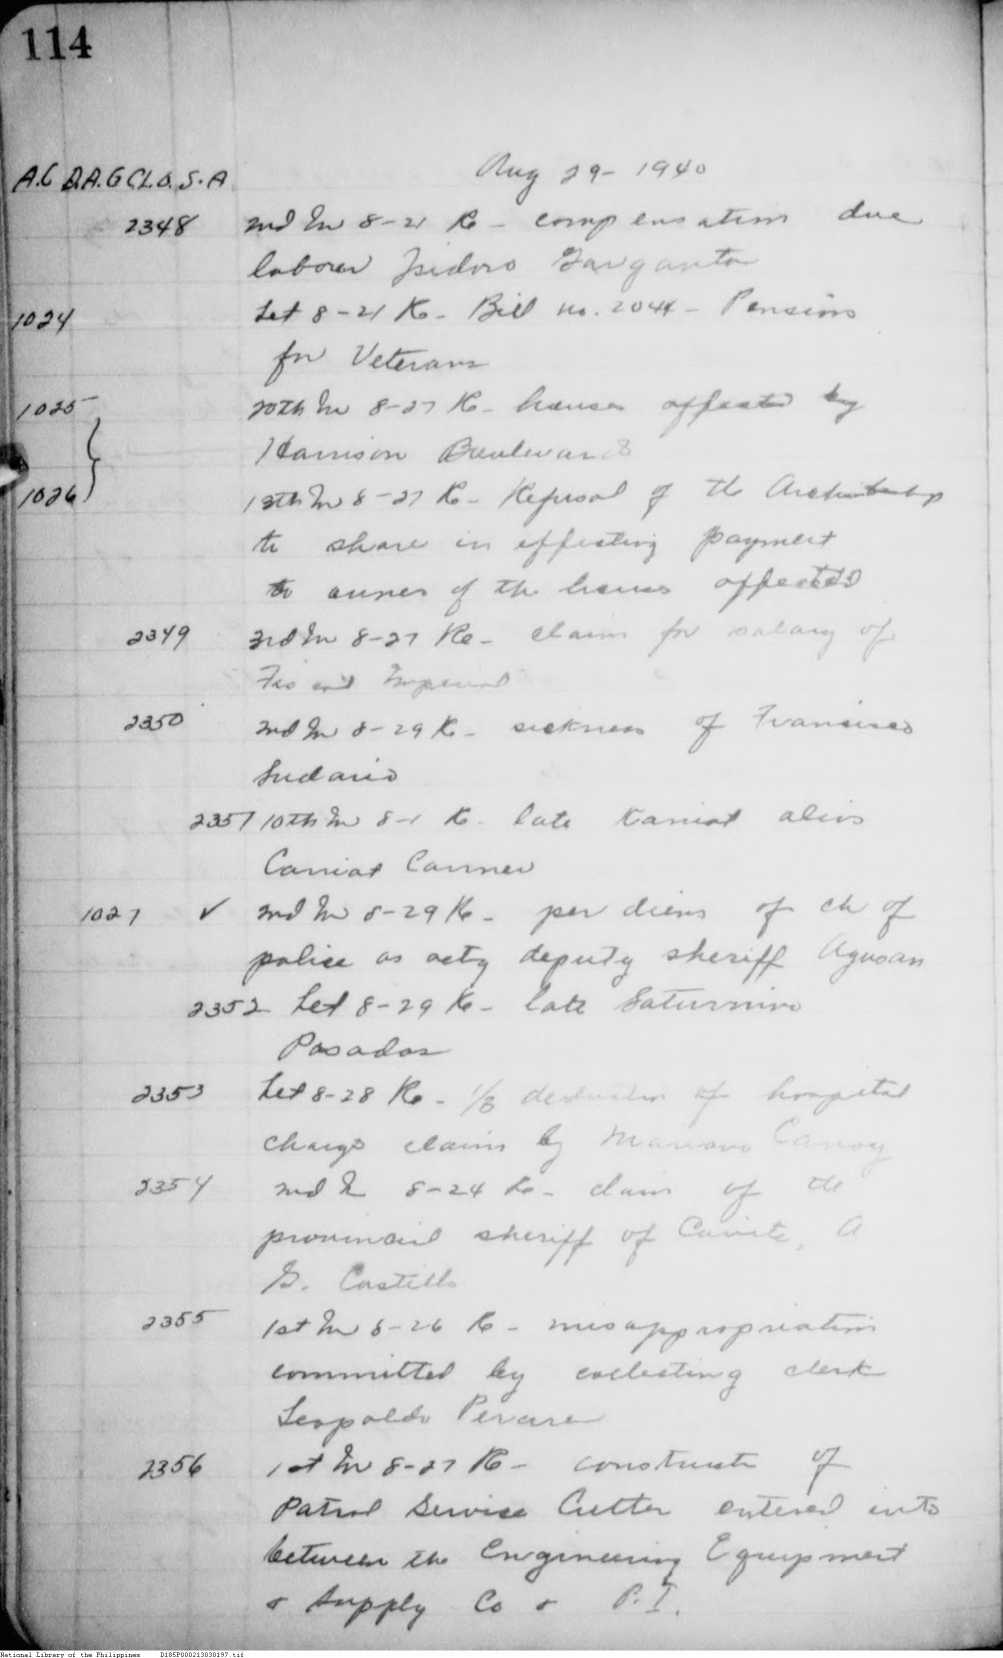 114
Aug 29 - 1940
A.C D.A.G CL.O. S.A
2348 2nd In 8-21 Re - compensation due
laborer Isidoro Garganta
1024 Let 8-21 Re - Bill no. 2044 - Pensions
for Veterans
1025 20th In 8-27 Re - houses affected by
Harrison Boulevard
1026 13th In 8-27 Re - Refusal of the Archbishop
to share in effecting payment
to owner of the houses affected
2349 3rd In 8-27 Re - claim for salary of
Imperial
2350 2nd In 8-29 Re - sickness of Francisco
Sudario
2351 10th In 8-1 Re - late Kaniat alias
Caniat
1027 ✓ 2nd In 8-29 Re - per diems of ch of
police as actg deputy sheriff Agusan
2352 Let 8-29 Re - late Saturnino
Posadas
2353 Let 8-28 Re - 1/3 deduction of hospital
charge claim by Mariano
2354 2nd In 8-24 Re - claim of the
provincial sheriff of Cavite, A
G. Castillo
2355 1st In 8-26 Re - misappropriation
committed by collecting clerk
Leopoldo
2356 1st In 8-27 Re - of
Patrol Service Cutter entered into
between the Engineering Equipment
& Supply Co & P.I.
National Library of the Philippines D185P000213030197.tif